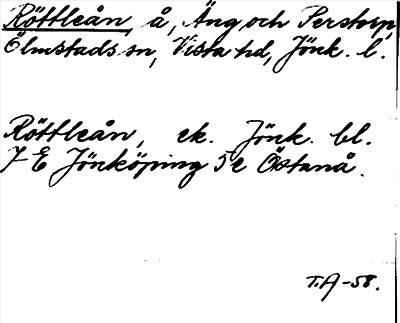 Röttleån, å, Äng och Perstorp,
Ölmstads sn, Vista hd, Jönk. l.
Röttleån, ek. Jönk. bl.
7 E Jönköping 5 e Östanå.
T.A-58.